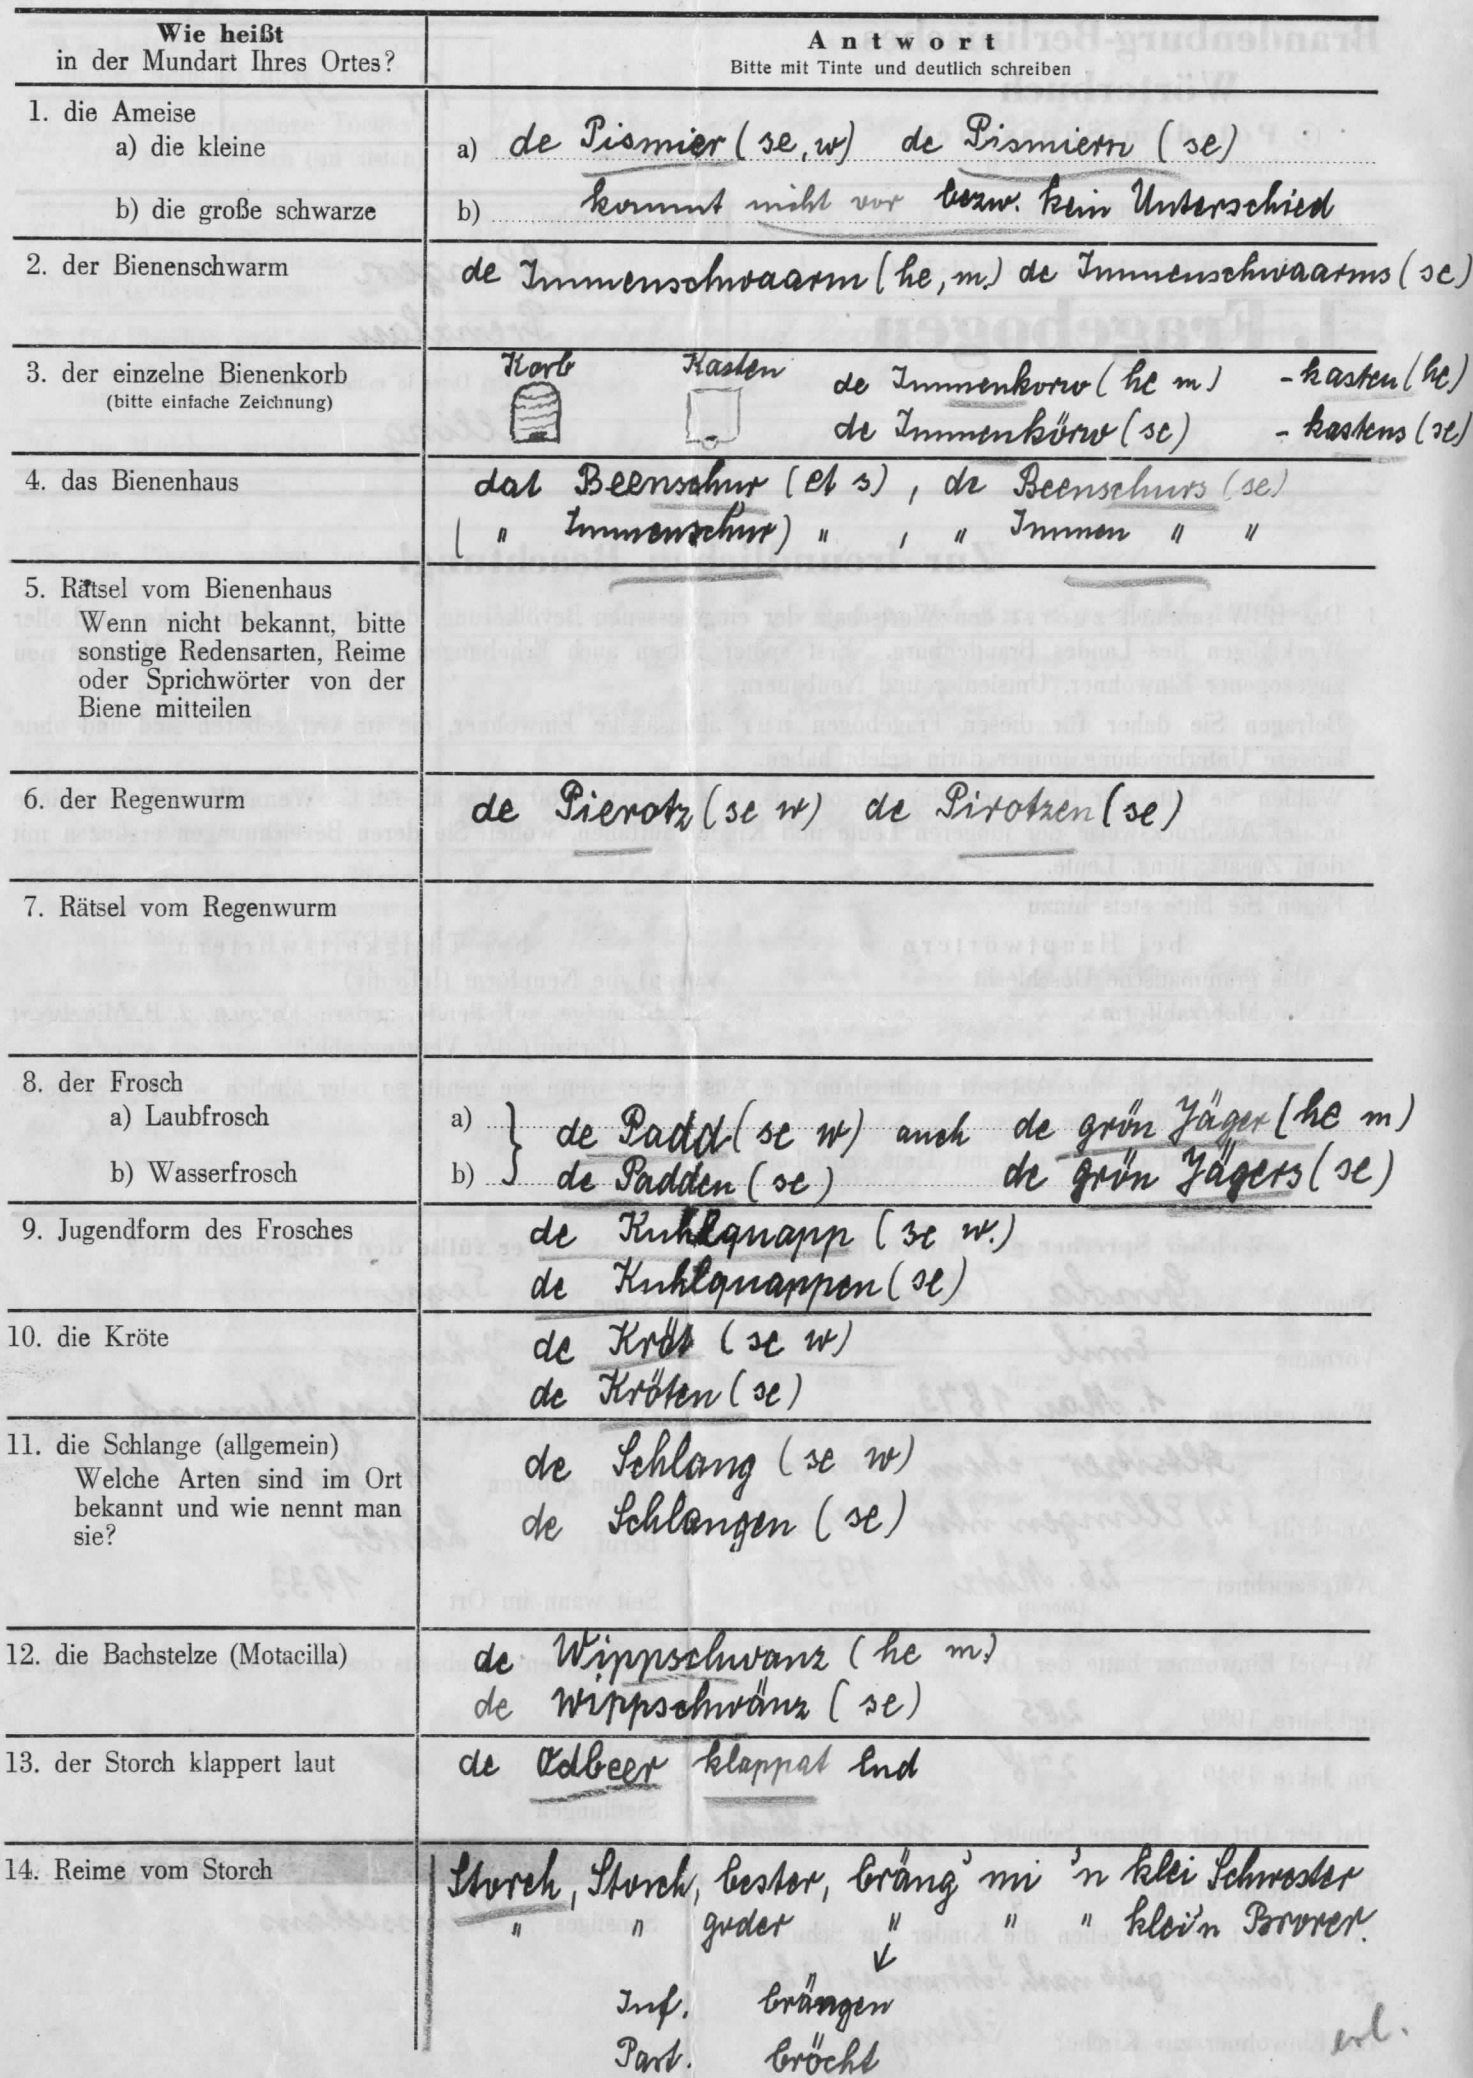 Wie heißt
in der Mundart Ihres Ortes?
Antwort
Bitte mit Tinte und deutlich schreiben
1. die Ameise
a) die kleine
a) de Pismier (se, w) de Pismiern (se)
b) die große schwarze
b) kommt nicht vor bezw. kein Unterschied
2. der Bienenschwarm
de Immenschwaarm (he, m.) de Immenschwaarms (se)
3. der einzelne Bienenkorb
(bitte einfache Zeichnung)
Korb Kasten
de Immenkorw (he m) - kasten (he)
de Immenkörw (se) - kastens (se)
4. das Bienenhaus
dat Beenschur (et s), de Beenschurs (se)
( " Immenschur) " , " Immen " "
5. Rätsel vom Bienenhaus
Wenn nicht bekannt, bitte
sonstige Redensarten, Reime
oder Sprichwörter von der
Biene mitteilen
6. der Regenwurm
de Pierotz (se w) de Pirotzen (se)
7. Rätsel vom Regenwurm
8. der Frosch
a) Laubfrosch
a) de Padd (se w) auch de grön Jäger (he m)
b) Wasserfrosch
b) de Padden (se) de grön Jägers (se)
9. Jugendform des Frosches
de Kuhlquapp (se w.)
de Kuhlquappen (se)
10. die Kröte
de Kröt (se w)
de Kröten (se)
11. die Schlange (allgemein)
Welche Arten sind im Ort
bekannt und wie nennt man
sie?
de Schlang (se w)
de Schlangen (se)
12. die Bachstelze (Motacilla)
de Wippschwanz (he m.)
de Wippschwänz (se)
13. der Storch klappert laut
de Odbeer klappat lud
14. Reime vom Storch
Storch, Storch, bester, bräng' mi 'n klei Schwester
" " guder " " " klei'n Brorer.
Inf. brängen
Part. bröcht
erl.